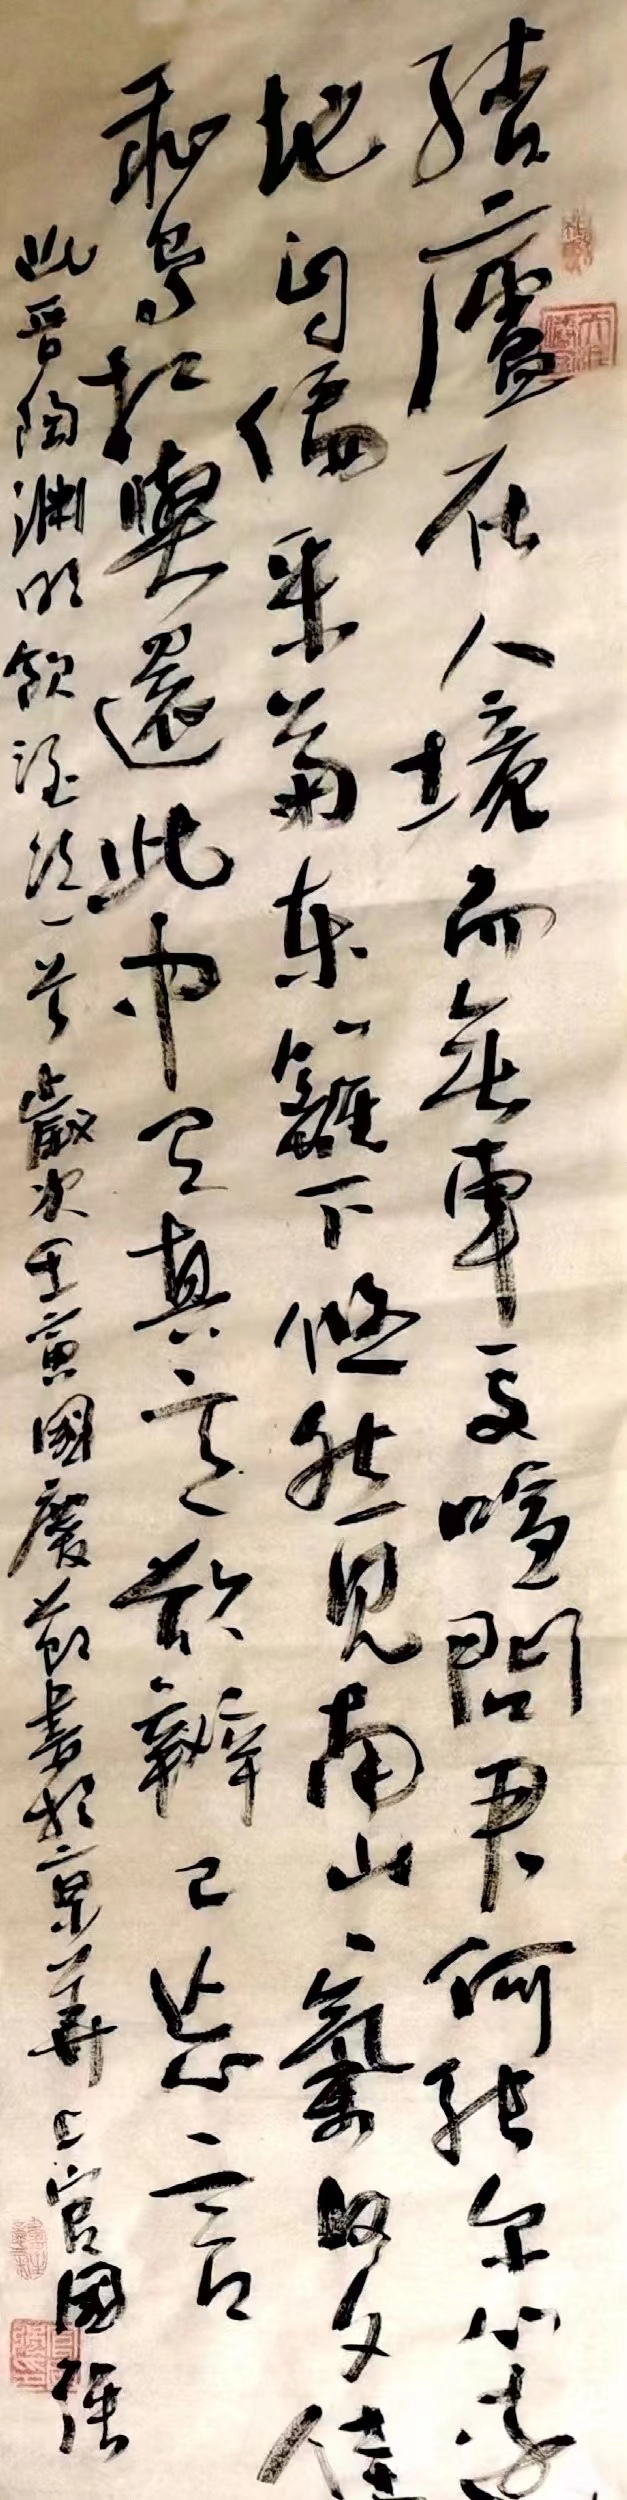 結廬在人境而無車馬喧問君何能尔心遠
地自偏采菊東籬下悠然見南山氣日夕佳
飛鳥相與還此中有真意欲辯已忘言
此晉陶淵明飲酒詩一首歲次壬寅國慶節書於京華上官國強